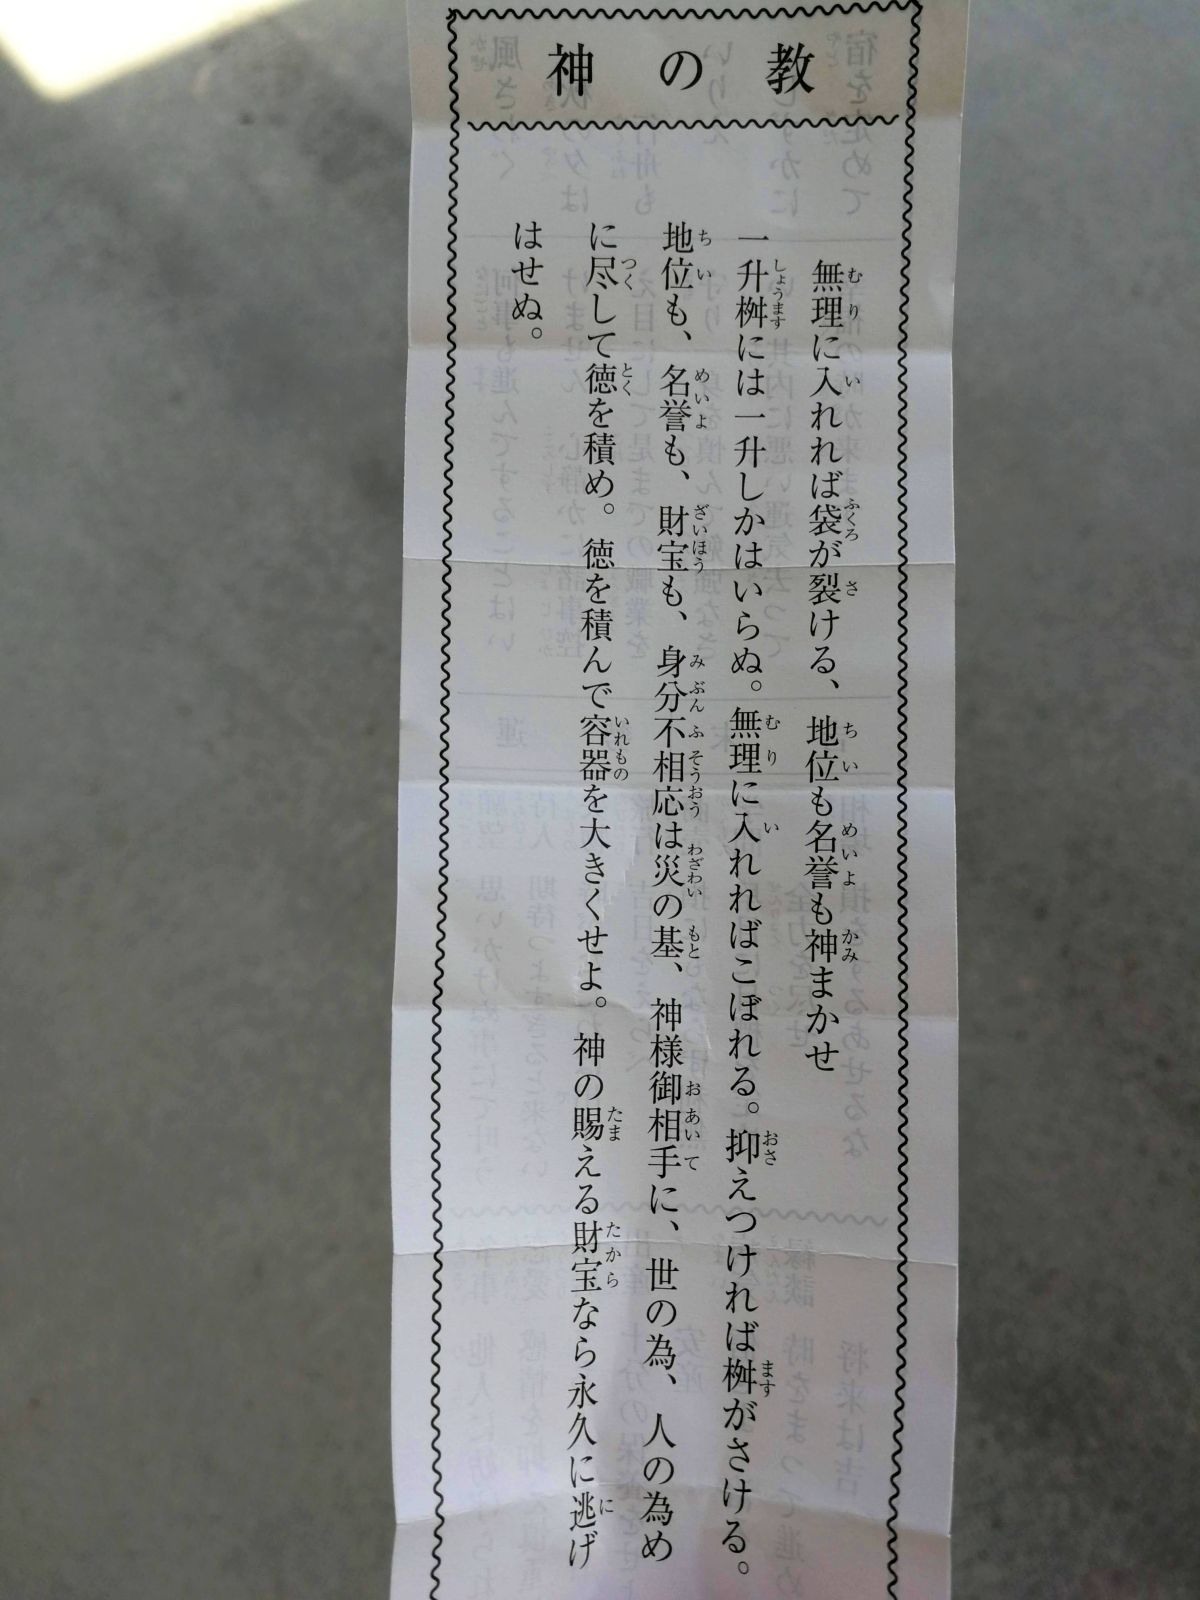 神の教
無理に入れれば袋が裂ける、地位も名誉も神まかせ
一升桝には一升しかはいらぬ。無理に入れればこぼれる。抑えつければ桝がさける。
地位も、名誉も、財宝も、身分不相応は災の基、神様御相手に、世の為、人の為め
に尽して徳を積め。徳を積んで容器を大きくせよ。神の賜える財宝なら永久に逃げ
はせぬ。